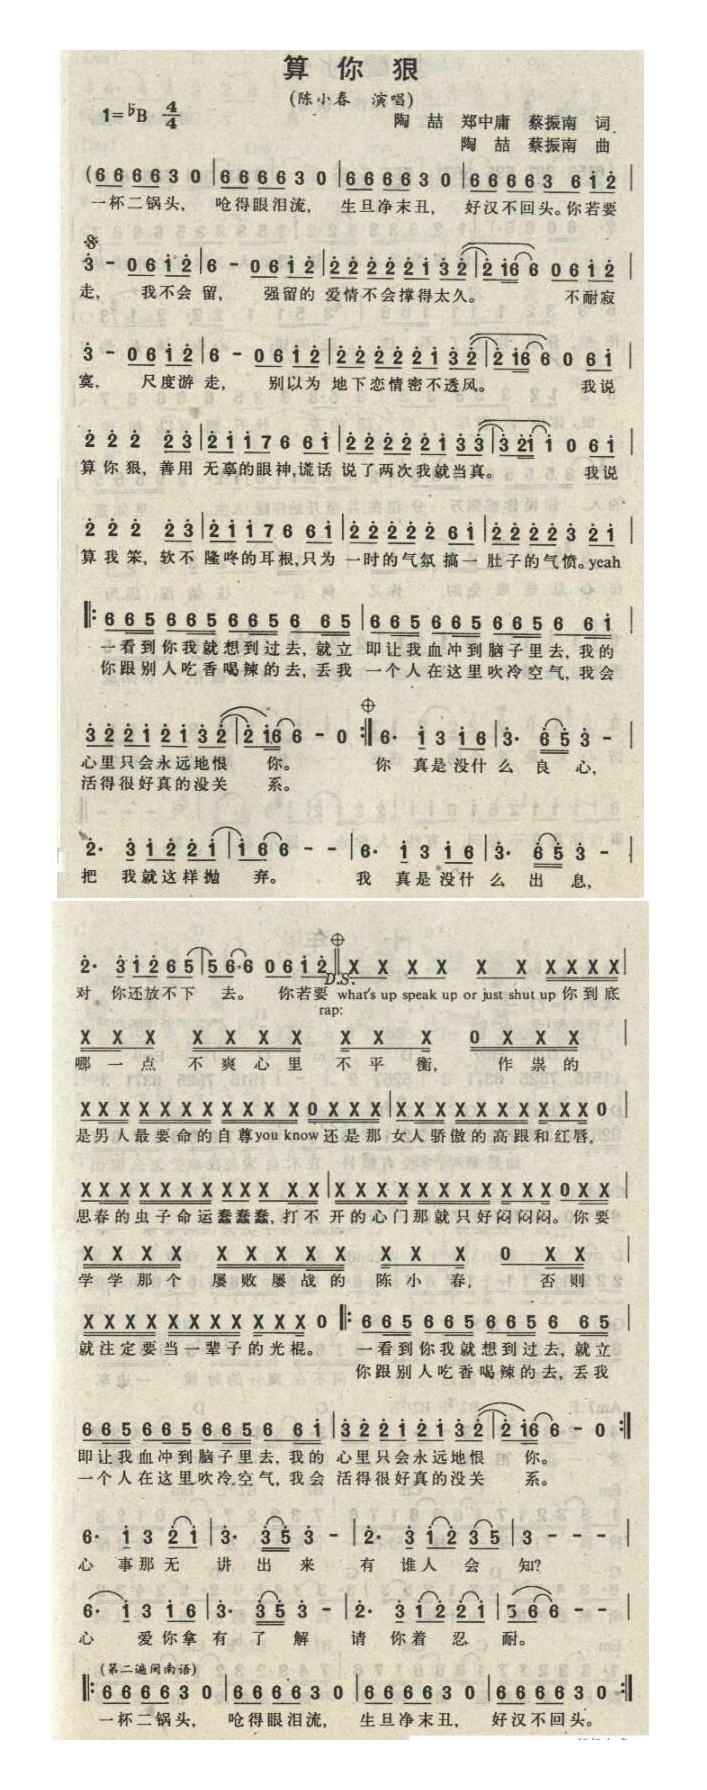 算你狠
(陈小春 演唱)
1=♭B 4/4
陶 喆 郑中庸 蔡振南 词
陶 喆 蔡振南 曲
(666630|666630|666630|66663 6i2|
一杯二锅头, 呛得眼泪流, 生旦净末丑, 好汉不回头。你若要
3 - 06i2|6 - 06i2|22222i32|2i66 06i2|
走, 我不会 留, 强留的 爱情不会撑得太久。 不耐寂
3 - 06i2|6 - 06i2|22222i32|2i66 0 6i|
寞, 尺度游 走, 别以为 地下恋情密不透风。 我说
2 2 2 23|2ii76 6i|22222i33|32ii 0 6i|
算你狠, 善用 无辜的眼神,谎话 说了两次我就当真。 我说
2 2 2 23|2ii76 6i|22222 6i|22223 2i|
算我笨, 软不 隆咚的耳根,只为 一时的气氛 搞一 肚子的气愤。yeah
‖:6656656656 65|665665665 6 6i|
一看到你我就想到过去, 就立 即让我血冲到脑子里去, 我的
你跟别人吃香喝辣的去, 丢我 一个人在这里吹冷空气, 我会
322i2i32|2i66 - 0:‖6· i3i6|3· 653 -|
心里只会永远地恨 你。 你 真是没什么良心,
活得很好真的没关 系。
2· 3i22i|i66 - -|6· i3i6|3· 653 -|
把 我就这样抛 弃。 我 真是没什么出息,
2· 3i265|566·6 06i2‖X X X X X X XXXX|
D.S.
对 你还放不下 去。 你若要 what's up speak up or just shut up 你到底
rap:
X X X X X X X X X X 0 X X X|
哪一点 不爽心里 不平衡, 作祟的
XXXXXXXXXXX0XXX|XXXXXXXXXXX0|
是男人最要命的自尊you know还是那 女人骄傲的高跟和红唇,
XXXXXXXXXX XX|XXXXXXXXXXX0XX|
思春的虫子命运蠢蠢蠢, 打不 开的心门那就只好闷闷闷。你要
X X X X X X X X X X X X 0 X X|
学学那个 屡败屡战的 陈小春, 否则
XXXXXXXXXXX0‖:665665665 6 65|
就注定要当一辈子的光棍。 一看到你我就想到过去, 就立
你跟别人吃香喝辣的去, 丢我
665665665 6 6i|322i2i32|2i66 - 0:‖
即让我血冲到脑子里去, 我的 心里只会永远地恨 你。
一个人在这里吹冷空气, 我会 活得很好真的没关 系。
6· i32i|3· 353 -|2· 3i235|3 - - -|
心 事那无 讲出来 有谁人会知?
6· i3i6|3· 353 -|2· 3i22i|566 - -|
心 爱你拿有了解 请你着忍 耐。
(第二遍闽南语)
‖:666630|666630|666630|666630:‖
一杯二锅头, 呛得眼泪流, 生旦净末丑, 好汉不回头。